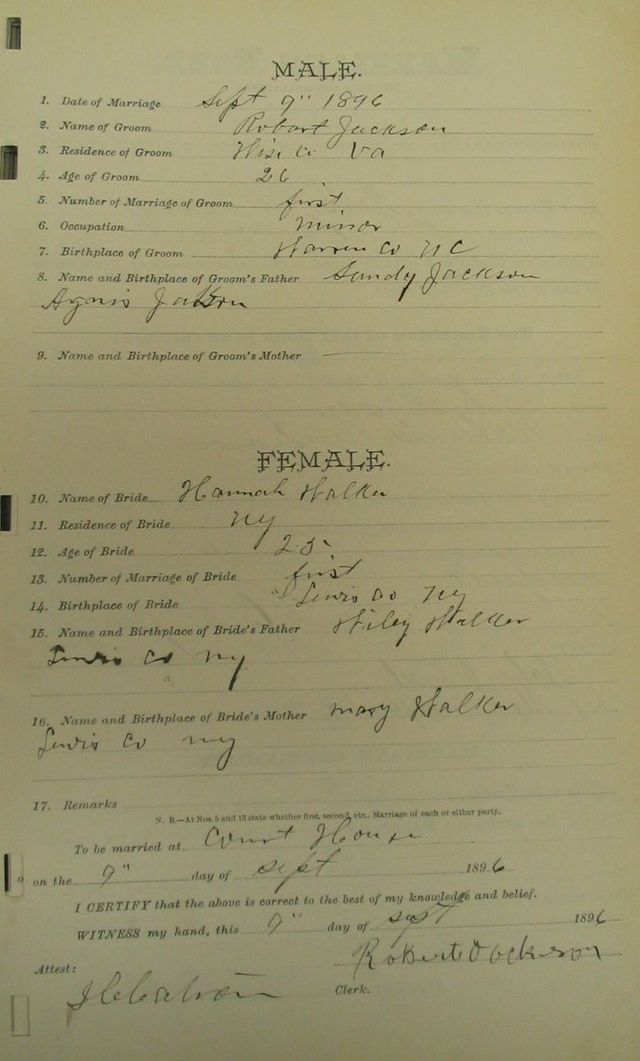 MALE.
1. Date of Marriage Sept 9" 1896
2. Name of Groom Robert Jackson
3. Residence of Groom Wise Co Va
4. Age of Groom 26
5. Number of Marriage of Groom first
6. Occupation minor
7. Birthplace of Groom Warren Co NC
8. Name and Birthplace of Groom's Father Sandy Jackson
Jackson
9. Name and Birthplace of Groom's Mother
FEMALE.
10. Name of Bride Hannah Walker
11. Residence of Bride Ky
12. Age of Bride 23
13. Number of Marriage of Bride first
14. Birthplace of Bride Lewis Co Ky
15. Name and Birthplace of Bride's Father Wiley Walker
Lewis Co Ky
16. Name and Birthplace of Bride's Mother Mary Walker
Lewis Co Ky
17. Remarks
N. B.—At Nos. 5 and 13 state whether first, second, etc., Marriage of each or either party.
To be married at Court House
on the 9" day of Sept 1896
I CERTIFY that the above is correct to the best of my knowledge and belief.
WITNESS my hand, this 9" day of Sept 1896
Robert Jackson
Attest:
Clerk.